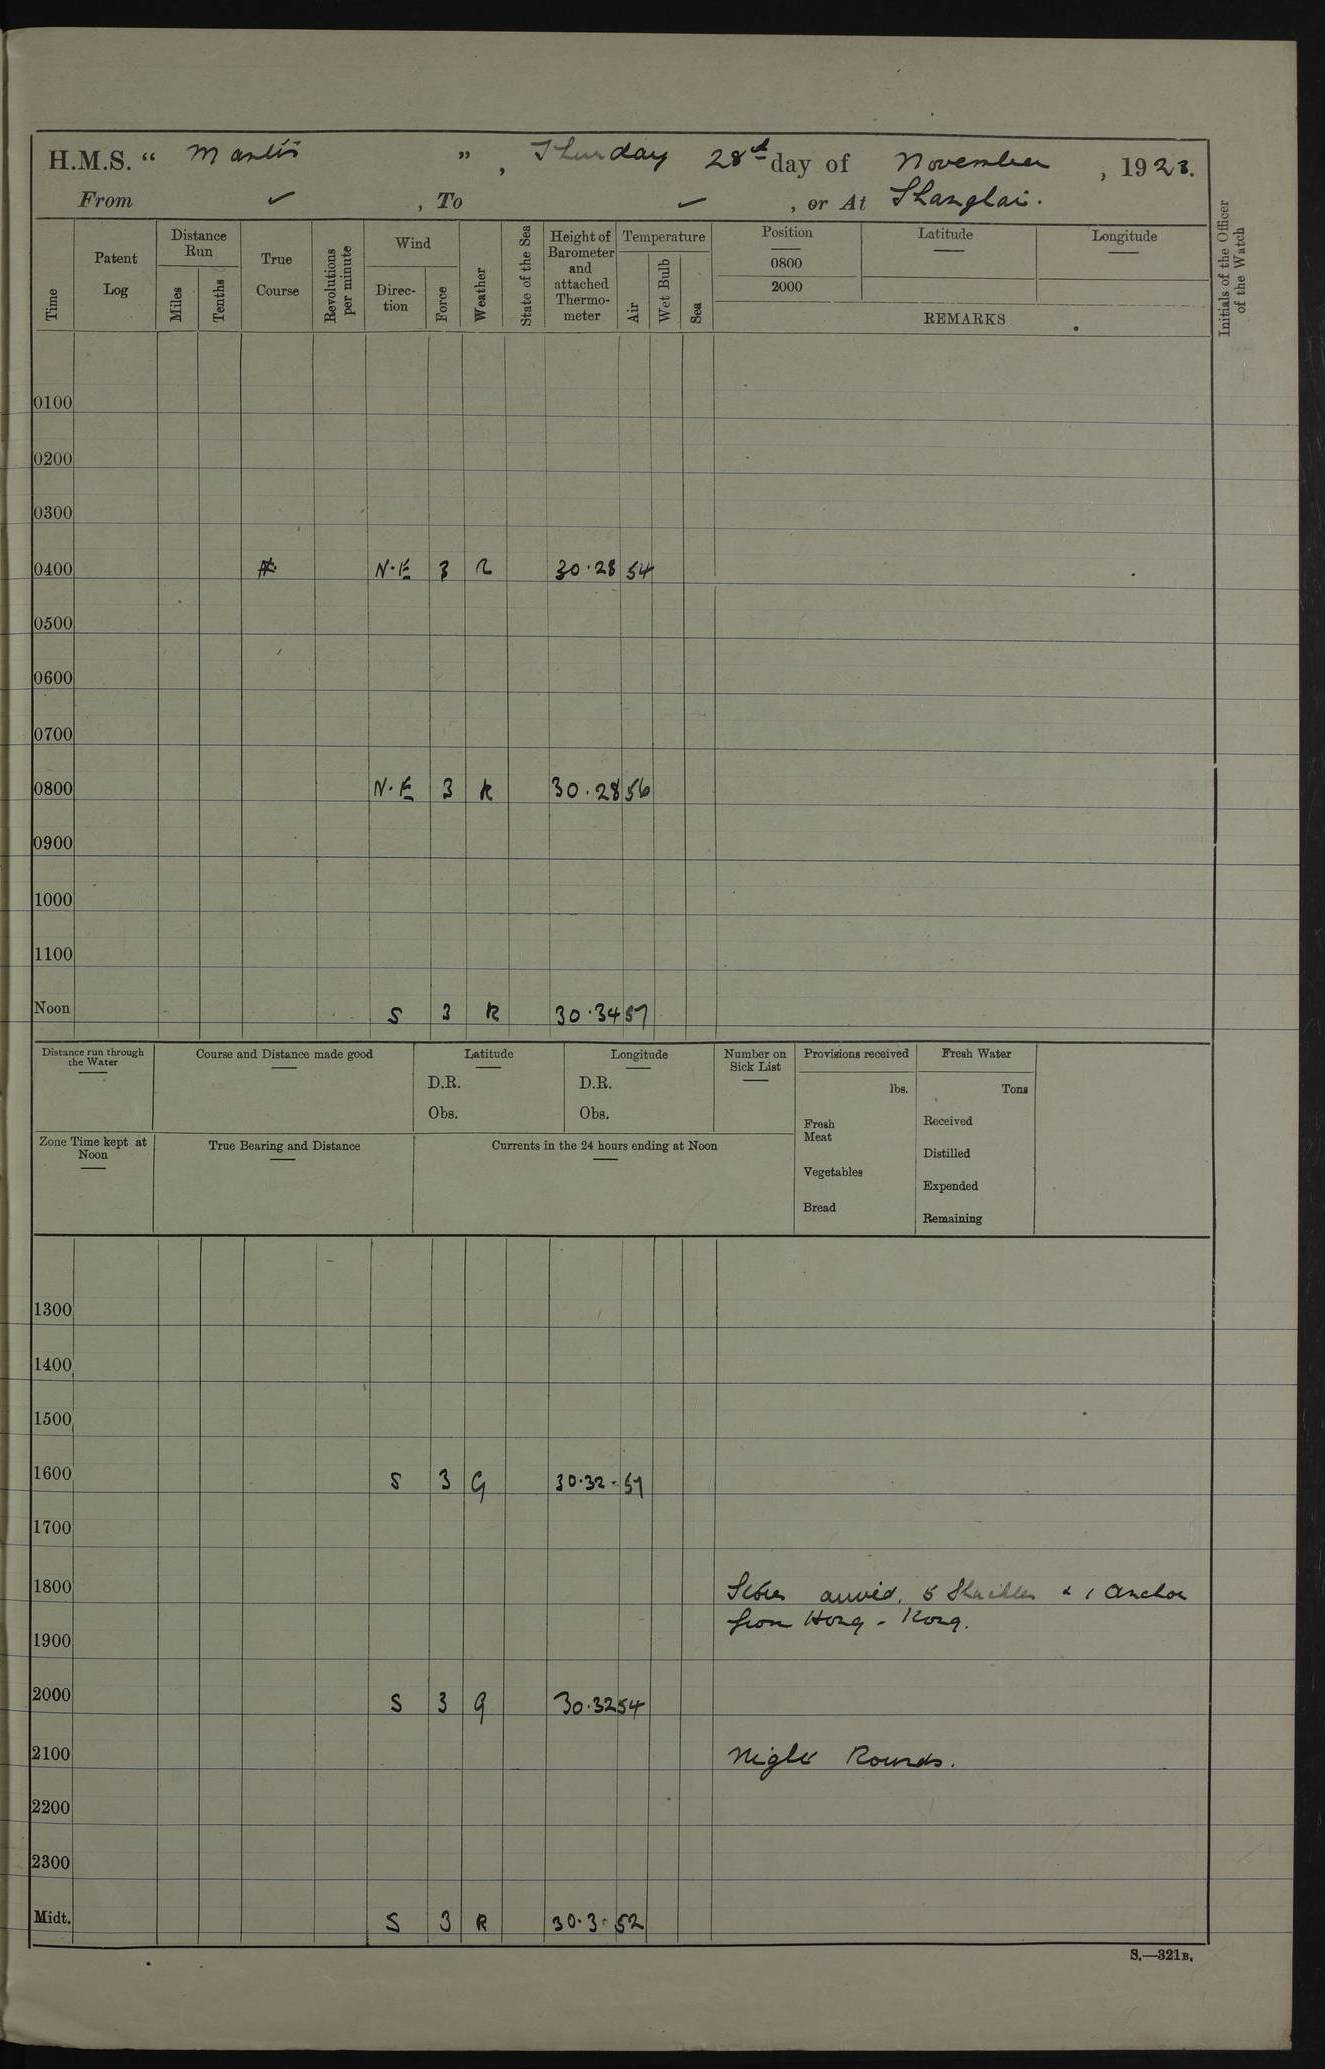 H.M.S. “ Mantis ” , Thursday 28th day of November , 1923.
From ✓ , To ✓ , or At Shanghai.
Time
Patent Log
Distance Run
Miles
Tenths
True Course
Revolutions per minute
Wind
Direc- tion
Force
Weather
State of the Sea
Height of Barometer and attached Thermo- meter
Temperature
Air
Wet Bulb
Sea
Position
0800
2000
Latitude
Longitude
REMARKS
Initials of the Officer of the Watch
0100
0200
0300
0400 N.E 3 R 30.28 54
0500
0600
0700
0800 N.E 3 R 30.28 56
0900
1000
1100
Noon S 3 R 30.34 57
Distance run through the Water
Course and Distance made good
Latitude
D.R.
Obs.
Longitude
D.R.
Obs.
Number on Sick List
Provisions received
lbs.
Fresh Meat
Vegetables
Bread
Fresh Water
Tons
Received
Distilled
Expended
Remaining
Zone Time kept at Noon
True Bearing and Distance
Currents in the 24 hours ending at Noon
1300
1400
1500
1600 S 3 G 30.32 57
1700
1800 Stores arrived. 5 Shackles & 1 Anchor
from Hong-Kong.
1900
2000 S 3 G 30.32 54
2100 Night Rounds.
2200
2300
Midt. S 3 R 30.3 52
S.—321B.